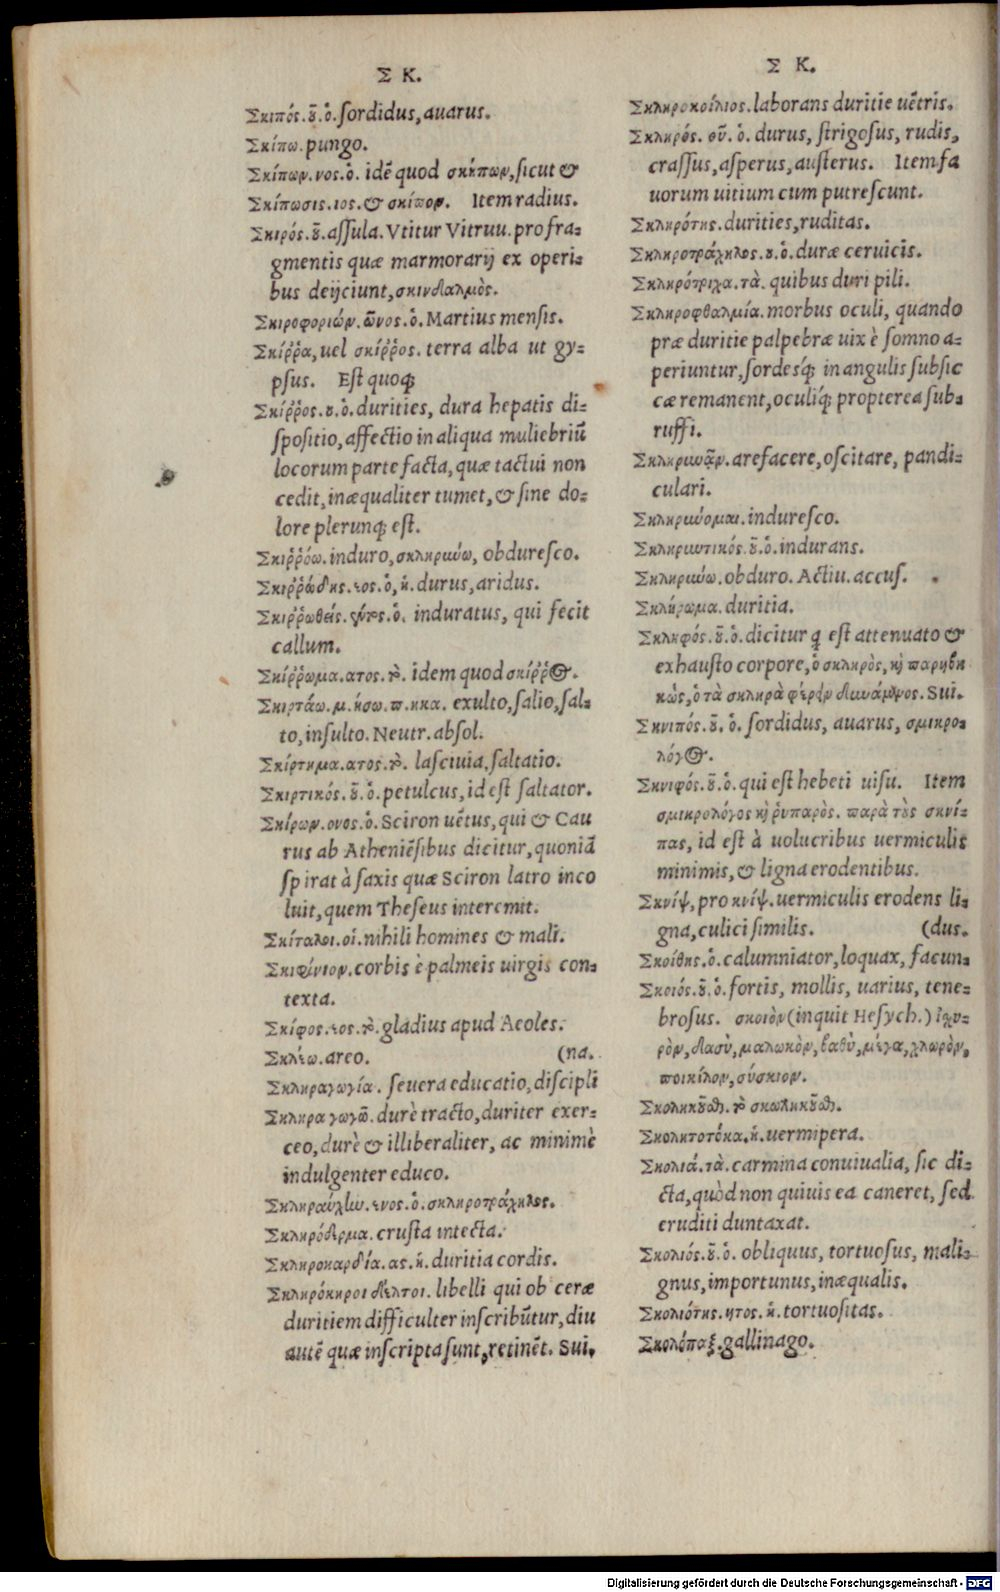 Σ Κ.
Σκιπός.ȣ͂.ὁ.ſordidus,auarus.
Σκίπω.pungo.
Σκίπων.νος.ὁ. idē quod σκήπων,ſicut &
Σκίπωσις.ιος.& σκίπον. Item radius.
Σκιρός.ȣ͂.aſſula. Vtitur Vitruu. pro fra-
gmentis quæ marmorarij ex operi-
bus deijciunt,σκινδαλμὸς.
Σκιροφοριών.ῶνος.ὁ.Martius menſis.
Σκίῤῥα,uel σκίῤῥος. terra alba ut gy-
pſus. Eſt quoq;
Σκίῤῥος.ȣ.ὁ.durities, dura hepatis di-
ſpoſitio,affectio in aliqua muliebriū
locorum parte facta,quæ tactui non
cedit,inæqualiter tumet,& ſine do-
lore plerunq; eſt.
Σκιῤῥόω.induro,σκληρωύω, obdureſco.
Σκιῤῥώδης.εος.ὁ,ἡ.durus,aridus.
Σκιῤῥωθείς.έντος.ὁ. induratus, qui fecit
callum.
Σκίῤῥωμα.ατος.τὸ. idem quod σκίῤῥος.
Σκιρτάω.μ.ήσω.π.ηκα. exulto,ſalio,ſal-
to,inſulto. Neutr. abſol.
Σκίρτημα.ατος.τὸ. laſciuia,ſaltatio.
Σκιρτικός.ȣ͂.ὁ.petulcus,id eſt ſaltator.
Σκίρων.ονος.ὁ.Sciron uētus,qui & Cau
rus ab Atheniēſibus dicitur,quoniā
ſpirat à ſaxis quæ Sciron latro inco
luit,quem Theſeus interemit.
Σκίταλοι.οἱ.nihili homines & mali.
Σκιφίνιον.corbis è palmeis uirgis con-
texta.
Σκίφος.εος.τὸ.gladius apud Aeoles.
Σκλέω.areo. (na.
Σκληραγωγία. ſeuera educatio,diſcipli
Σκληραγωγῶ.durè tracto,duriter exer-
ceo,durè & illiberaliter, ac minimè
indulgenter educo.
Σκληραύχlω.ενος.ὁ.σκληροτράχηλος.
Σκληρόδερμα.cruſta intecta.
Σκληροκαρδία.ας.ἡ.duritia cordis.
Σκληρόκηροι δέλτοι. libelli qui ob ceræ
duritiem difficulter inſcribūtur,diu
autē quæ inſcripta ſunt,retinēt. Sui.
Σ Κ.
Σκληροκοίλιος.laborans duritie uētris.
Σκληρός.οῦ.ὁ.durus, ſtrigoſus, rudis,
craſſus,aſperus,auſterus. Item fa
uorum uitium cum putreſcunt.
Σκληρότης.durities,ruditas.
Σκληροτράχηλος.ȣ.ὁ.duræ ceruicis.
Σκληρότριχα.τὰ. quibus duri pili.
Σκληροφθαλμία.morbus oculi, quando
præ duritie palpebræ uix è ſomno a-
periuntur,ſordesq́; in angulis ſubſic
cæ remanent,oculiq́; propterea ſub-
ruffi.
Σκληρωᾶν.arefacere,oſcitare, pandi-
culari.
Σκληρωύομαι.indureſco.
Σκληρωτικός.ȣ͂.ὁ.indurans.
Σκληρωύω.obduro. Actiu. accuſ.
Σκλήρωμα.duritia.
Σκληφός.ȣ͂.ὁ.dicitur q̄ eſt attenuato &
exhauſto corpore,ὁ σκληρὸς,κỳ παρηβη
κὼς,ὁ τὰ σκληρὰ φέρειν δυνάμενος. Sui.
Σκνιπός.ȣ͂.ὁ. ſordidus, auarus, σμικρο-
λόγος.
Σκνιφός.ȣ͂.ὁ.qui eſt hebeti uiſu. Item
σμικρολόγος κỳ ῥυπαρὸς. παρὰ τȣ̀ς σκνί-
πας, id eſt à uolucribus uermiculis
minimis,& ligna erodentibus.
Σκνίψ,pro κνίψ.uermiculis erodens li-
gna,culici ſimilis. (dus.
Σκοίθης.ὁ.calumniator,loquax, facun-
Σκοιός.ȣ͂.ὁ.fortis, mollis, uarius, tene-
broſus. σκοιὸν(inquit Heſych.) ἰχυ-
ρὸν,δασὺ,μαλακὸν,βαθὺ,μέγα,χλωρὸν,
ποικίλον,σύσκιον.
Σκοληκȣ͂ϑαι. τὸ σκωληκȣ͂ϑαι.
Σκοληκτοτόκα.ἡ.uermipera.
Σκολιά.τὰ.carmina conuiualia, ſic di-
cta,quòd non quiuis ea caneret, ſed
eruditi duntaxat.
Σκολιός.ȣ͂.ὁ. obliquus, tortuoſus, mali-
gnus,importunus,inæqualis.
Σκολιότης.ητος.ἡ.tortuoſitas.
Σκολόπαξ.gallinago.
Digitalisierung gefördert durch die Deutsche Forschungsgemeinschaft - DFG